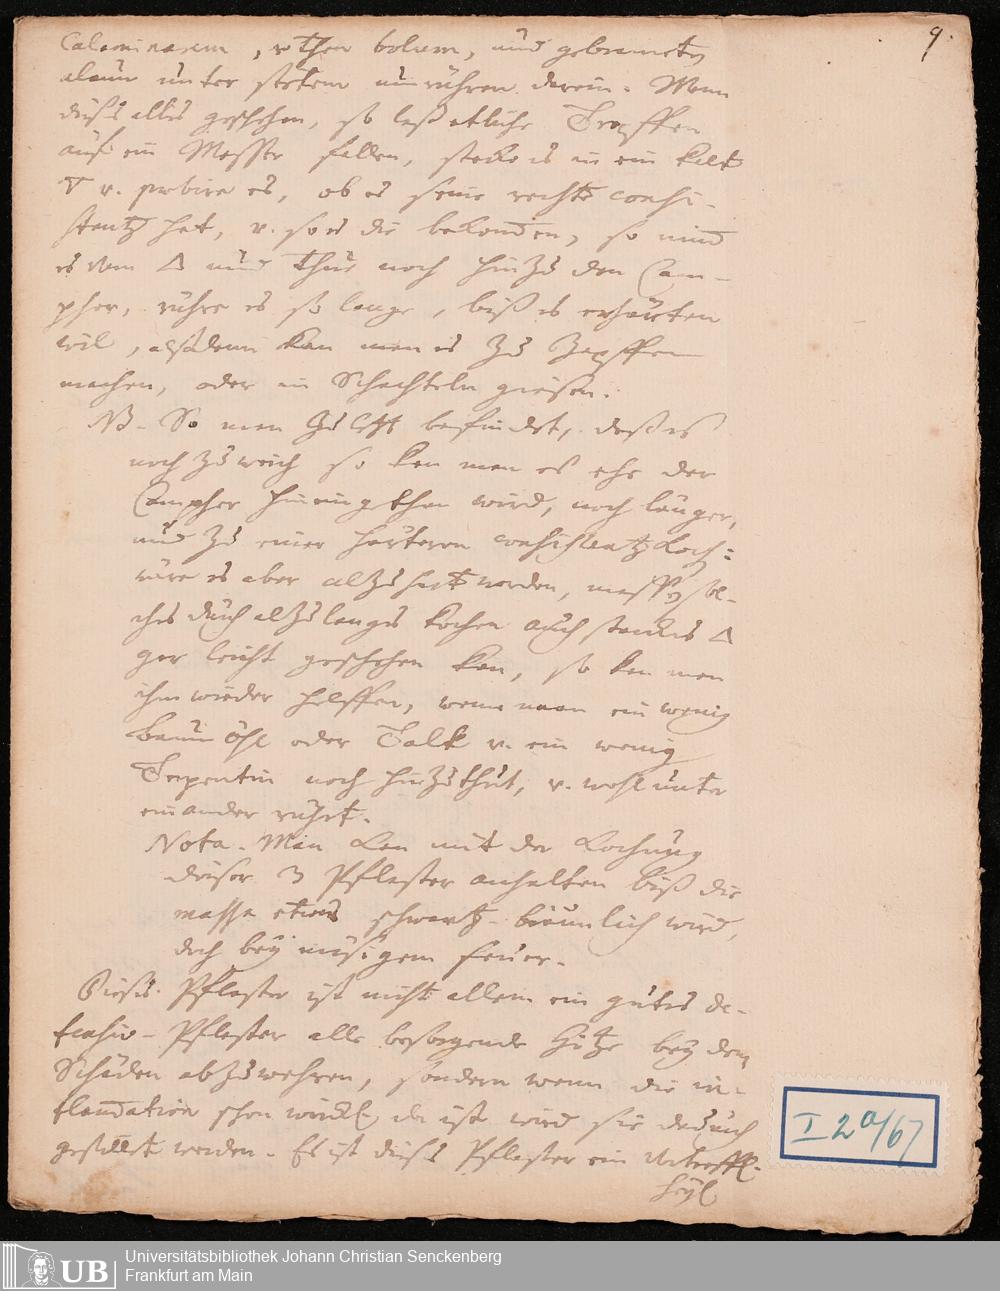 9.
Calaminarem, rothen bolum, und gebranten
alaun unter stetem umrühren darein. Wenn
diß alles geschehen, so laß etliche Tropffen
auf ein Messer fallen, stecke es in ein kalt
▽ v. probire es, ob es seine rechte consi-
stentz hat, v. so es die bekommen, so nim
es vom △ und thue noch hinzu den Cam-
pher, rühre es so lange, biß es erharten
wil, alßdenn kan man es zu Zapffen
machen, oder in Schachteln giesen.
NB. So man zu letzt befindet, daß es
noch zu weich so kan man es ehe der
Campher hinein gethan wird, noch länger,
und zu einer härteren consistentz koch:
wäre es aber alzu hart worden, wel-
ches durch alzulanges kochen auch starckes △
gar leicht geschehen kan, so kan man
ihm wieder helffen, wenn man ein wenig
baum öhl oder Talk v. ein wenig
Terpentin noch hinzuthut, v. wohl unter
einander rührt.
Nota. Man kan mit der Kochung
dieser Pflaster anhalten biß die
massa etwas schwartz-bräunlich wird,
doch bey mäsigem feuer.
Dieses Pflaster ist nicht allein ein gutes de-
fensiv-Pflaster alle besorgende Hitze bey den
Schäden abzuwehren, sondern wenn die in-
flammation schon würckl. da ist wird sie dadurch
gestillet werden. Es ist dieses Pflaster ein
Heyl
I 2a/67
UB
Universitätsbibliothek Johann Christian Senckenberg
Frankfurt am Main